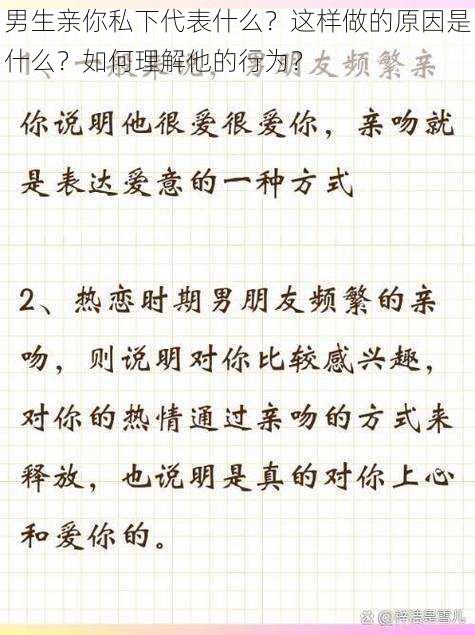 男生亲你私下代表什么？这样做的原因是
什么？如何理解他的行为？
1、一般来说，男朋友频繁亲
你说明他很爱很爱你，亲吻就
是表达爱意的一种方式
2、热恋时期男朋友频繁的亲
吻，则说明对你比较感兴趣，
对你的热情通过亲吻的方式来
释放，也说明是真的对你上心
和爱你的。
@梓洁是雪儿